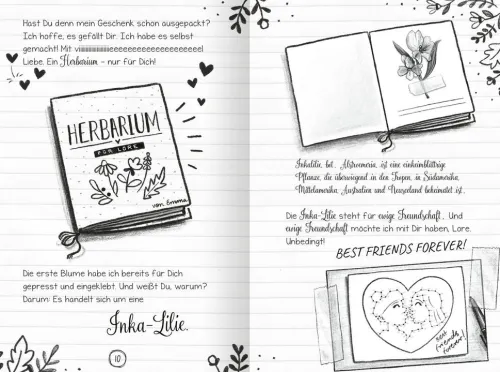 Hast Du denn mein Geschenk schon ausgepackt?
Ich hoffe, es gefällt Dir. Ich habe es selbst
gemacht! Mit viiiiiiiiiiiiiiieeeeeeeeeeeeeeeeeeeel
Liebe. Ein Herbarium – nur für Dich!
HERBARIUM
FÜR LORE
von Emma
Die erste Blume habe ich bereits für Dich
gepresst und eingeklebt. Und weißt Du, warum?
Darum: Es handelt sich um eine
Inka-Lilie.
10
Inkalilie, bot. Alstroemeria, ist eine einkeimblättrige
Pflanze, die überwiegend in den Tropen, in Südamerika,
Mittelamerika, Australien und Neuseeland beheimatet ist.
Die Inka-Lilie steht für ewige Freundschaft. Und
ewige Freundschaft möchte ich mit Dir haben, Lore.
Unbedingt!
BEST FRIENDS FOREVER!
Best
friends
forever!